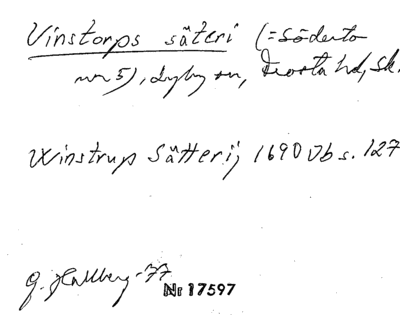 Vinstorps säteri (=Söderto
nr 5), Lyby sn, Frosta hd, Sk.
Winstrup Sätterij 1690 Jb s. 127
G. Hallberg -77
Nr 17597